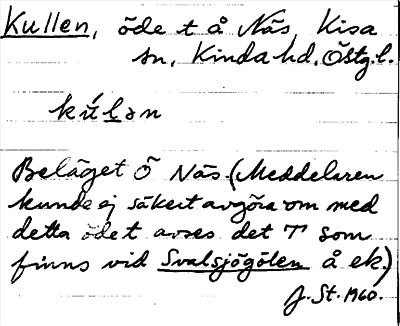 Kullen, öde t å Näs, Kisa
sn, Kinda hd, Östg. l.
kúlən
Beläget Ö Näs. (Meddelaren
kunde ej säkert avgöra om med
detta ödet avses det T som
finns vid Svalsjögölen å ek.)
J. St. 1960.